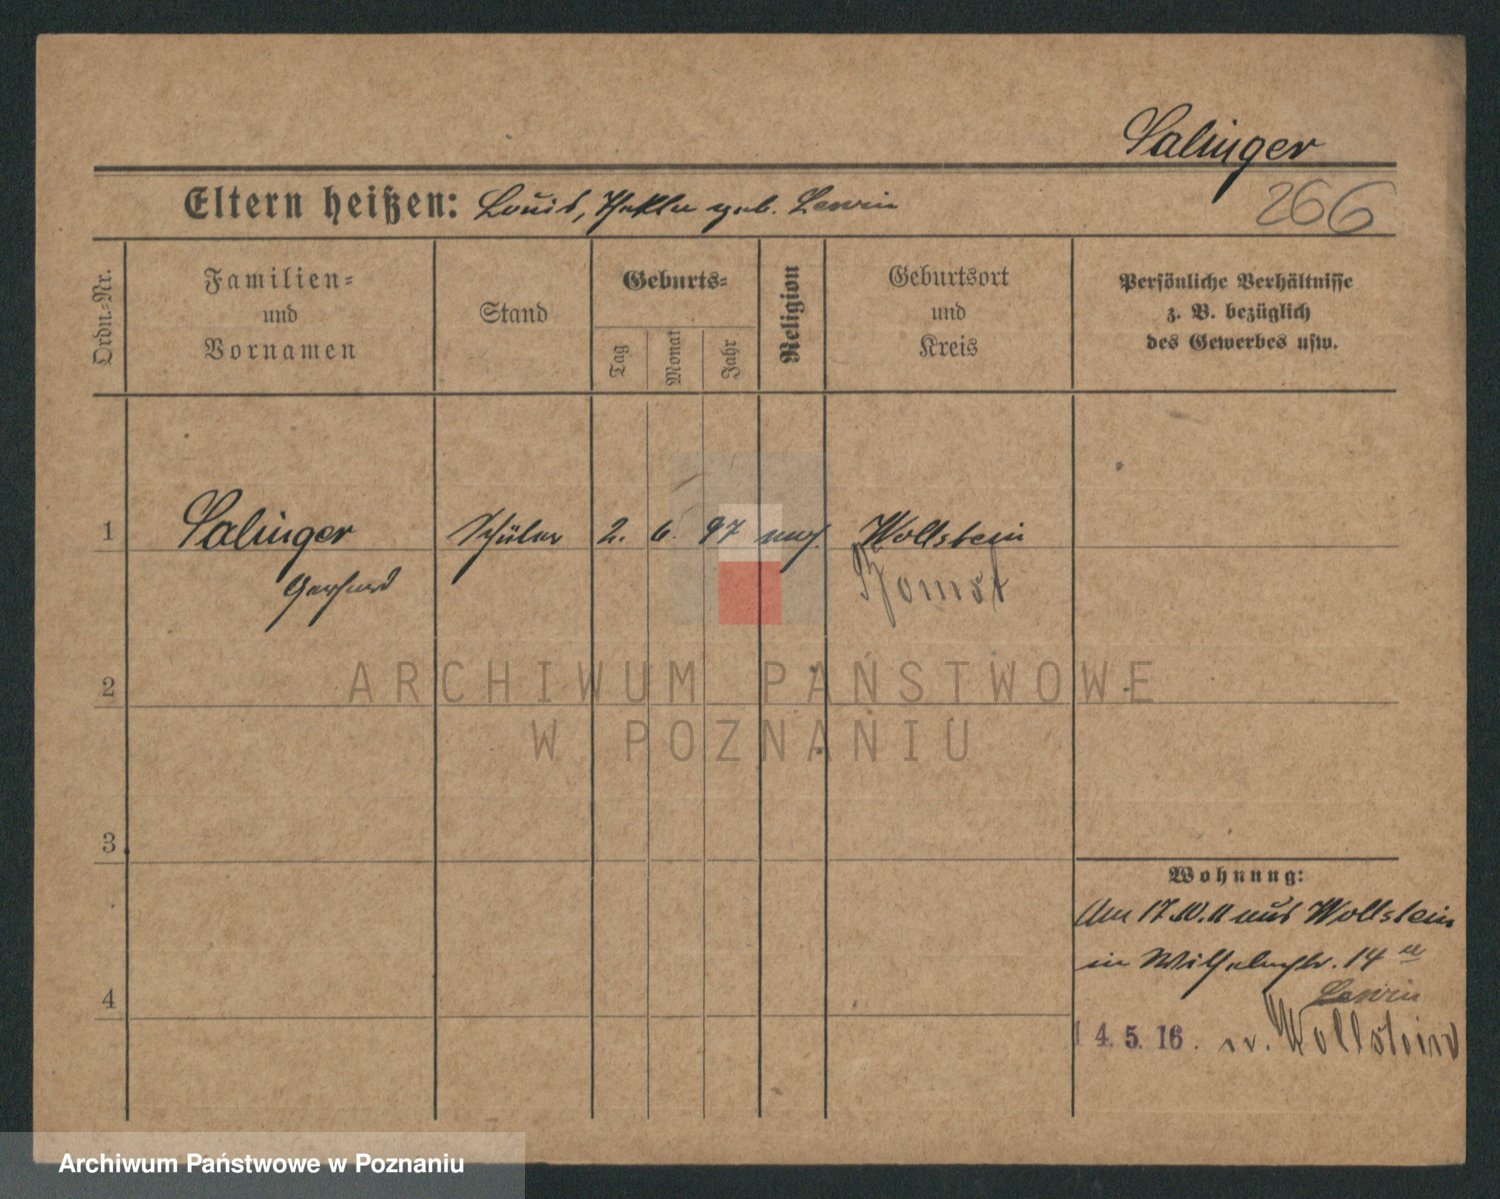 Salinger
266
Eltern heißen: Louis, Thekla geb. Lewin
Ordn.-Nr.
Familien-
und
Vornamen
Stand
Geburts-
Tag
Monat
Jahr
Religion
Geburtsort
und
Kreis
Persönliche Verhältnisse
z. B. bezüglich
des Gewerbes usw.
1 Salinger Schüler 2. 6. 97 Wollstein
Gerhard Bomst
ARCHIWUM PAŃSTWOWE
W POZNANIU
2
3
4
Wohnung:
Am 17.10.11 aus Wollstein
in Wilhelmstr. 14 II
Lewin
14.5.16. n. Wollstein
Archiwum Państwowe w Poznaniu